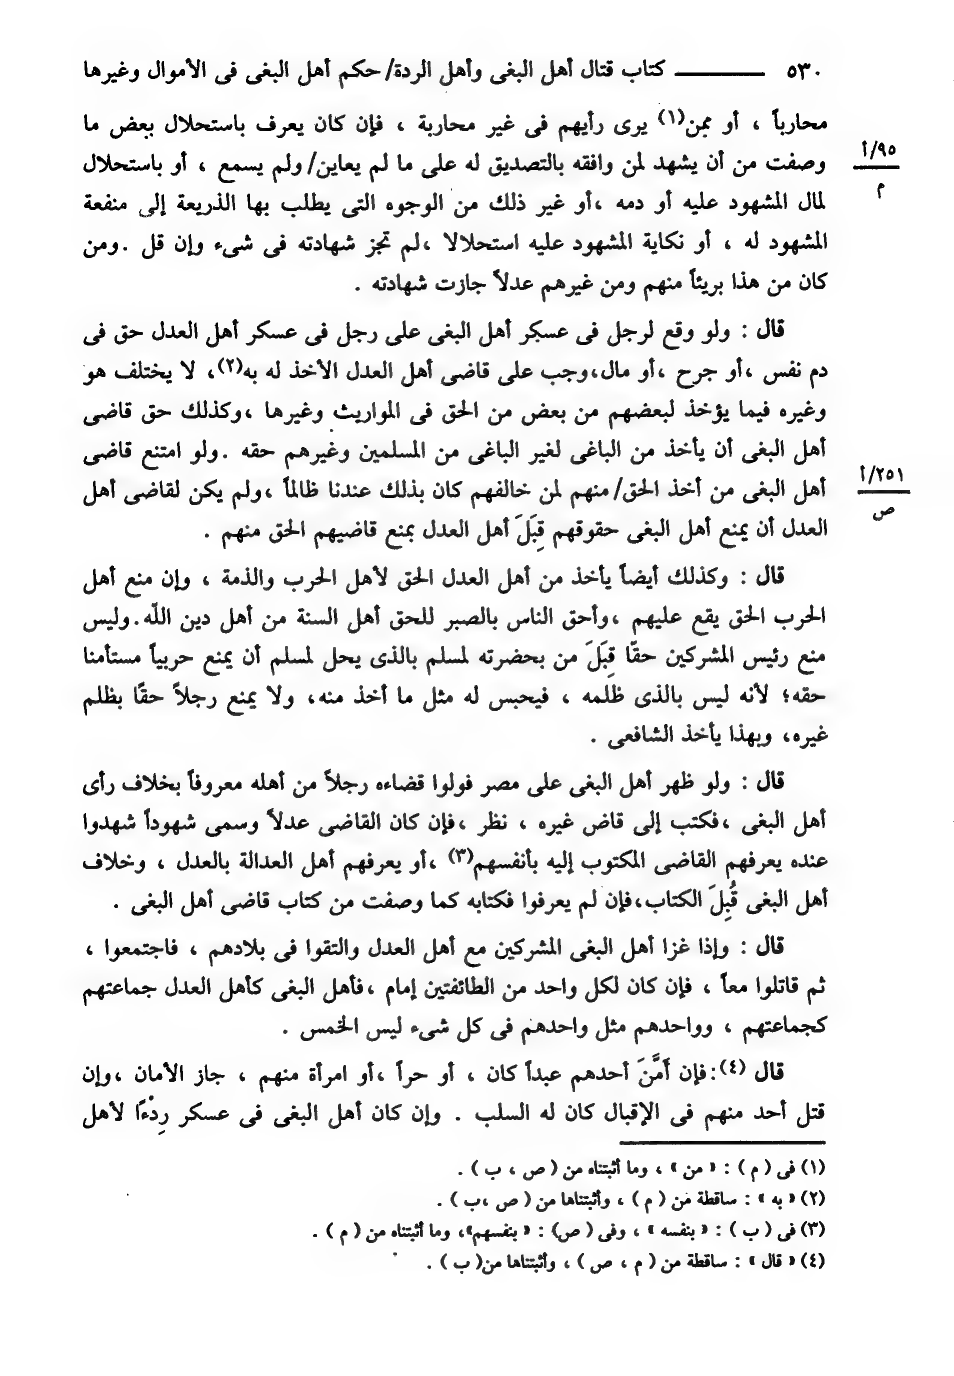 ٥٣٠ ــــــــ كتاب قتال أهل البغى وأهل الردة/ حكم أهل البغى فى الأموال وغيرها
محارباً ، أو ممن(١) يرى رأيهم فى غير محاربة ، فإن كان يعرف باستحلال بعض ما
وصفت من أن يشهد لمن وافقه بالتصديق له على ما لم يعاين/ ولم يسمع ، أو باستحلال
٩٥/أ
م
لمال المشهود عليه أو دمه ،أو غير ذلك من الوجوه التى يطلب بها الذريعة إلى منفعة
المشهود له ، أو نكاية المشهود عليه استحلالا ،لم تجز شهادته فى شىء وإن قل .ومن
كان من هذا بريئاً منهم ومن غيرهم عدلاً جازت شهادته .
قال : ولو وقع لرجل فى عسكر أهل البغى على رجل فى عسكر أهل العدل حق فى
دم نفس ،أو جرح ،أو مال،وجب على قاضى أهل العدل الأخذ له به(٢)، لا يختلف هو
وغيره فيما يؤخذ لبعضهم من بعض من الحق فى المواريث وغيرها ،وكذلك حق قاضى
أهل البغى أن يأخذ من الباغى لغير الباغى من المسلمين وغيرهم حقه .ولو امتنع قاضى
أهل البغى من أخذ الحق/ منهم لمن خالفهم كان بذلك عندنا ظالماً ،ولم يكن لقاضى أهل
٢٥١/أ
ص
العدل أن يمنع أهل البغى حقوقهم قِبَلَ أهل العدل بمنع قاضيهم الحق منهم .
قال : وكذلك أيضاً يأخذ من أهل العدل الحق لأهل الحرب والذمة ، وإن منع أهل
الحرب الحق يقع عليهم ،وأحق الناس بالصبر للحق أهل السنة من أهل دين اللّه.وليس
منع رئيس المشركين حقّا قِبَلَ من بحضرته لمسلم بالذى يحل لمسلم أن يمنع حربياً مستأمنا
حقه؛ لأنه ليس بالذى ظلمه ، فيحبس له مثل ما أخذ منه، ولا يمنع رجلاً حقّا بظلم
غيره، وبهذا يأخذ الشافعى .
قال : ولو ظهر أهل البغى على مصر فولوا قضاءه رجلاً من أهله معروفاً بخلاف رأى
أهل البغى ،فكتب إلى قاض غيره ، نظر ،فإن كان القاضى عدلاً وسمى شهوداً شهدوا
عنده يعرفهم القاضى المكتوب إليه بأنفسهم(٣) ،أو يعرفهم أهل العدالة بالعدل ، وخلاف
أهل البغى قُبِلَ الكتاب،فإن لم يعرفوا فكتابه كما وصفت من كتاب قاضى أهل البغى .
قال : وإذا غزا أهل البغى المشركين مع أهل العدل والتقوا فى بلادهم ، فاجتمعوا ،
ثم قاتلوا معاً ، فإن كان لكل واحد من الطائفتين إمام ،فأهل البغى كأهل العدل جماعتهم
كجماعتهم ، وواحدهم مثل واحدهم فى كل شىء ليس الخمس .
قال (٤):فإن أَمَّنَ أحدهم عبداً كان ، أو حراً ،أو امرأة منهم ، جاز الأمان ،وإن
قتل أحد منهم فى الإقبال كان له السلب . وإن كان أهل البغى فى عسكر رِدْءًا لأهل
(١) فى ( م ) : « من » ، وما أثبتناه من ( ص ، ب ) .
(٢) « به » : ساقطة من ( م ) ، وأثبتناها من ( ص ،ب ) .
(٣) فى ( ب ) : « بنفسه » ، وفى ( ص) : « بنفسهم»، وما أثبتناه من ( م ) .
(٤) « قال » : ساقطة من ( م ، ص ) ، وأثبتناها من( ب ) .